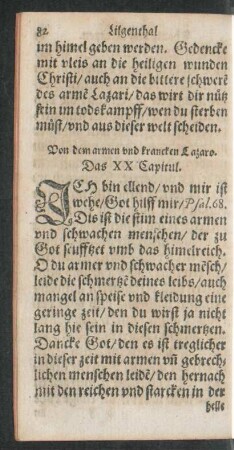 82 Lilgenthal
im himel geben werden. Gedencke
mit vleis an die heiligen wunden
Christi/ auch an die bittere schwerẽ
des armẽ Lazari/ das wirt dir nütz
sein im todskampff/ wen du sterben
müst/ vnd aus dieser welt scheiden.
Von dem armen vnd krancken Lazaro.
Das XX Capitul.
ICH bin ellend/ vnd mir ist
wehe/ Got hilff mir/ Psal. 68.
Dis ist die stim eines armen
vnd schwachen menschen/ der zu
Got seufftzet vmb das himelreich.
O du armer vnd schwacher mẽsch/
leide die schmertzẽ deines leibs/ auch
mangel an speise vnd kleidung eine
geringe zeit/ den du wirst ja nicht
lang hie sein in diesen schmertzen.
Dancke Got/ den es ist treglicher
in dieser zeit mit armen vñ gebrech-
lichen menschen leidẽ/ den hernach
mit den reichen vnd starcken in der
helle